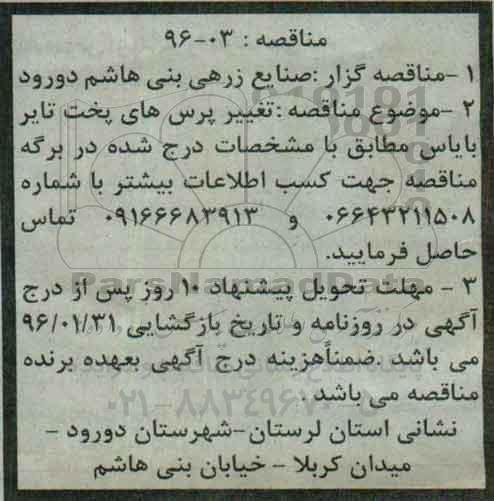 مناقصه : ۰۳-۹۶
۱ -مناقصه گزار :صنایع زرهی بنی هاشم دورود
۲ -موضوع مناقصه :تغییر پرس های پخت تایر
بایاس مطابق با مشخصات درج شده در برگه
مناقصه جهت کسب اطلاعات بیشتر با شماره
۰۶۶۴۳۲۱۱۵۰۸ و ۰۹۱۶۶۶۸۳۹۱۳ تماس
حاصل فرمایید.
ParsNamadData
۳ - مهلت تحویل پیشنهاد ۱۰ روز پس از درج
آگهی در روزنامه و تاریخ بازگشایی ۹۶/۰۱/۳۱
می باشد .ضمناًهزینه درج آگهی بعهده برنده
مناقصه می باشد .
۰۲۱-۸۸۳۴۹۶۷۰
نشانی استان لرستان-شهرستان دورود -
میدان کربلا - خیابان بنی هاشم